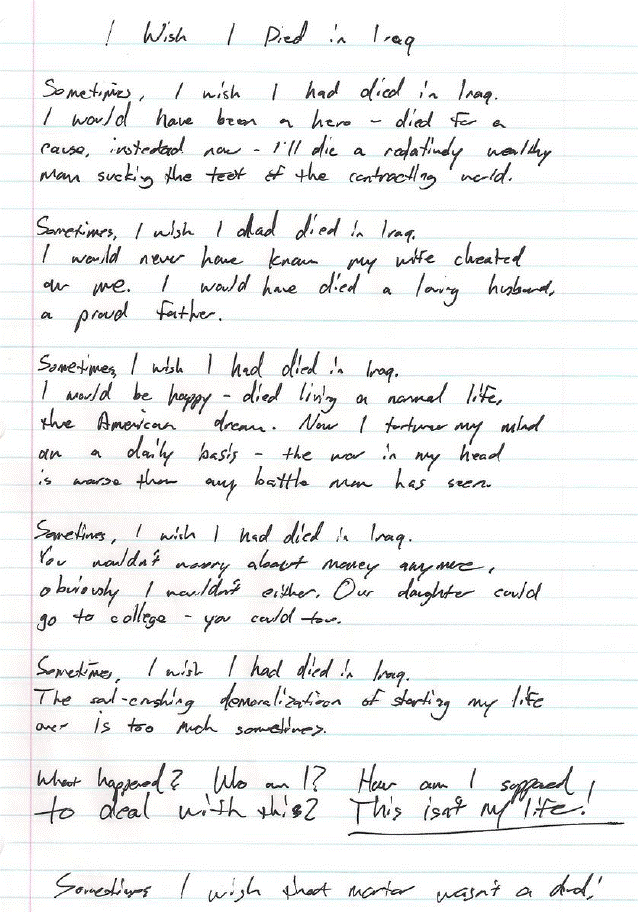 I Wish I Died in Iraq
Sometimes, I wish I had died in Iraq.
I would have been a hero - died for a
cause, instedad now - I'll die a relatively wealthy
man sucking the teet of the contracting world.
Sometimes, I wish I had died in Iraq.
I would never have known my wife cheated
on me. I would have died a loving husband,
a proud father.
Sometimes, I wish I had died in Iraq.
I would be happy - died living a normal life,
the American dream. Now I torture my mind
on a daily basis - the war in my head
is worse than any battle man has seen.
Sometimes, I wish I had died in Iraq.
You wouldn't worry about money anymore,
obviously I wouldn't either. Our daughter could
go to college - you could too.
Sometimes, I wish I had died in Iraq.
The soul-crushing demoralization of starting my life
over is too much sometimes.
What happened? Who am I? How am I supposed
to deal with this? This isn't my life!
Sometimes I wish that mortar wasn't a dud!